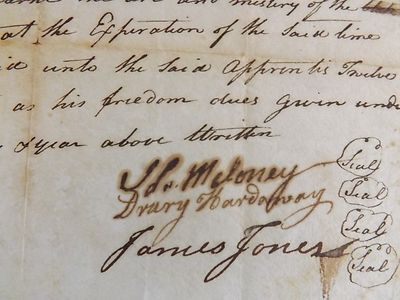 the art and mistery of the
at the Experation of the Said time
unto the Said Apprentis Twelve
as his freedom dues givin und
& year above Written
Seal
Moloney
Seal
Drury Hardaway
Seal
James Jones
Seal